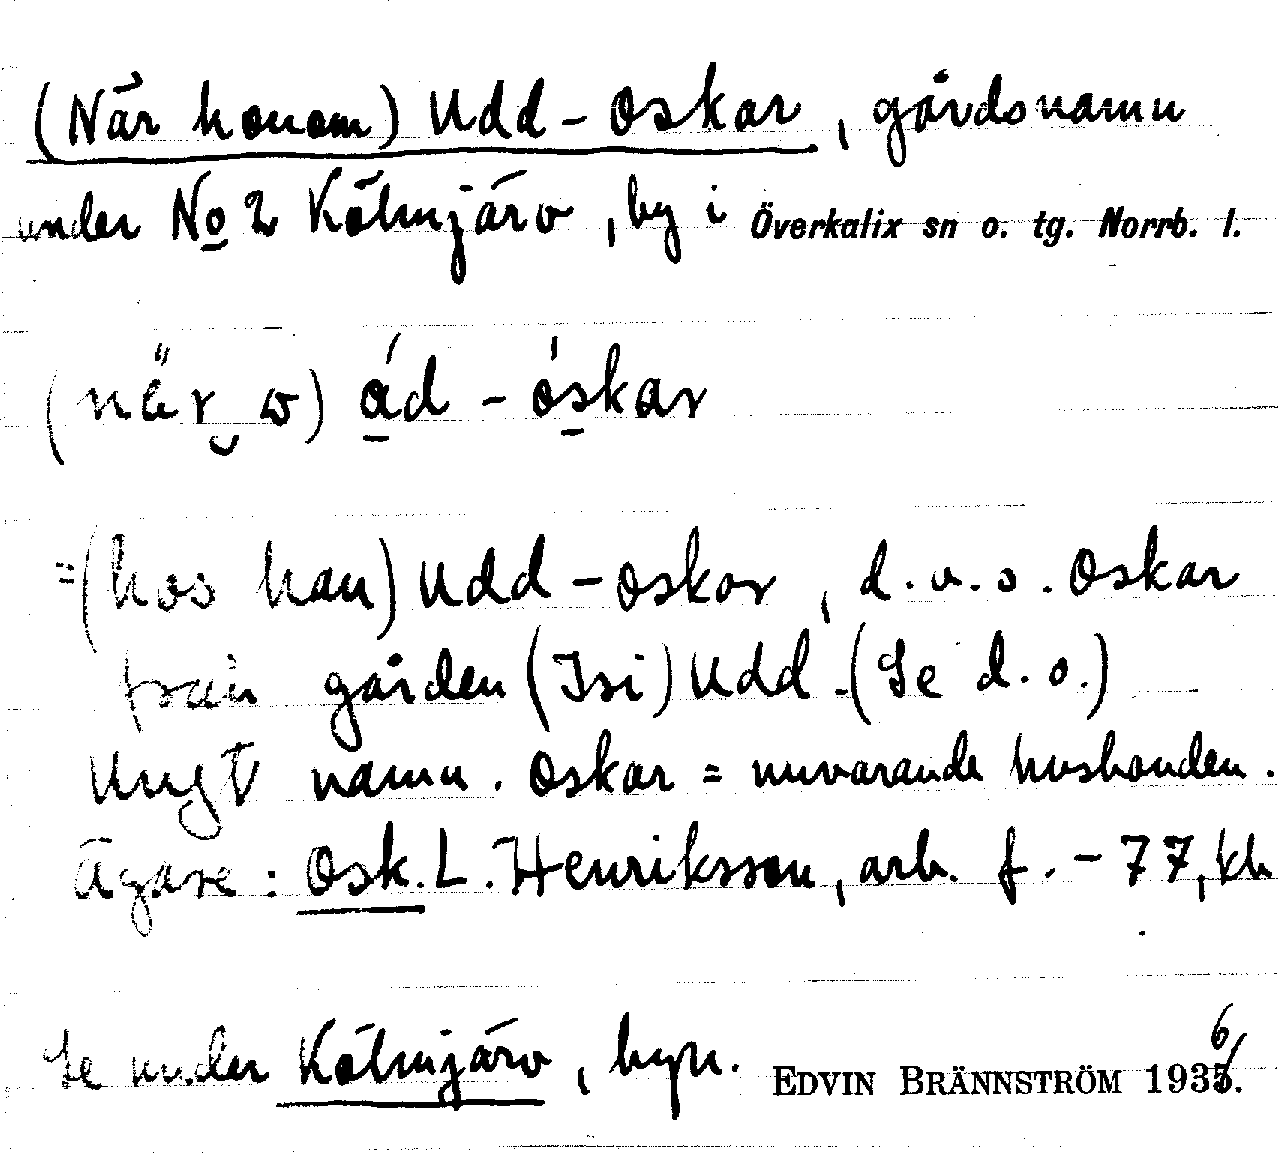 (När honom) Udd-Oskar, gårdsnamn
under No 2 Kölmjärv, by i Överkalix sn o. tg. Norrb. l.
ád - óskar
=(hos han) Udd-Oskar, d.v.s. Oskar
från gården (Isi) Udd. (Se d.o.)
Ungt namn. Oskar = nuvarande husbonden.
Ägare: Osk. L. Henriksson, arb. f. -77, kb
Se under Kölmjärv, byn. EDVIN BRÄNNSTRÖM 1936.